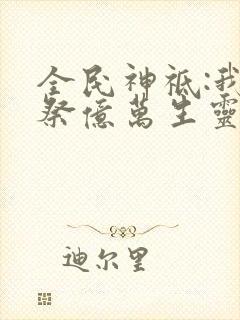 全民神祗:我
祭億萬生靈
迪尔里